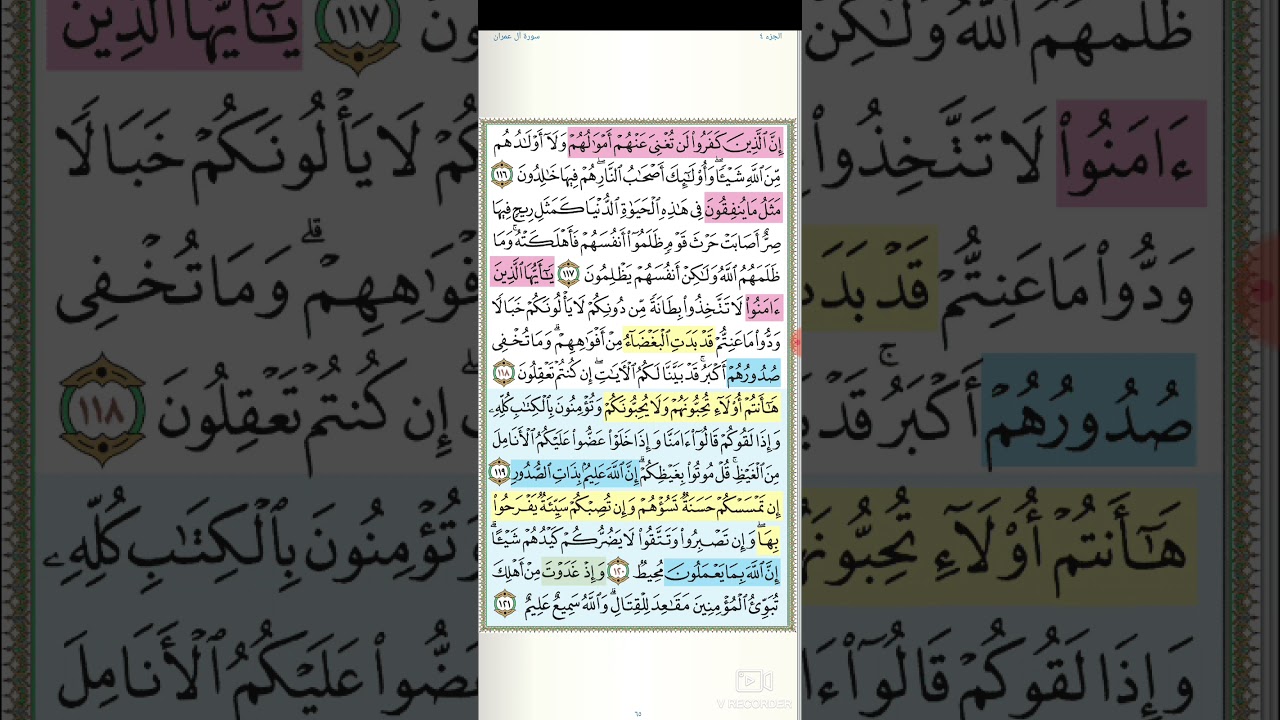 سورة آل عمران الجزء ٤
إِنَّ ٱلَّذِينَ كَفَرُوا۟ لَن تُغْنِىَ عَنْهُمْ أَمْوَٰلُهُمْ وَلَآ أَوْلَـٰدُهُم
مِّنَ ٱللَّهِ شَيْـًٔا ۖ وَأُو۟لَـٰٓئِكَ أَصْحَـٰبُ ٱلنَّارِ ۚ هُمْ فِيهَا خَـٰلِدُونَ ١١٦
مَثَلُ مَا يُنفِقُونَ فِى هَـٰذِهِ ٱلْحَيَوٰةِ ٱلدُّنْيَا كَمَثَلِ رِيحٍ فِيهَا
صِرٌّ أَصَابَتْ حَرْثَ قَوْمٍ ظَلَمُوٓا۟ أَنفُسَهُمْ فَأَهْلَكَتْهُ ۚ وَمَا
ظَلَمَهُمُ ٱللَّهُ وَلَـٰكِنْ أَنفُسَهُمْ يَظْلِمُونَ ١١٧ يَـٰٓأَيُّهَا ٱلَّذِينَ
ءَامَنُوا۟ لَا تَتَّخِذُوا۟ بِطَانَةً مِّن دُونِكُمْ لَا يَأْلُونَكُمْ خَبَالًا
وَدُّوا۟ مَا عَنِتُّمْ قَدْ بَدَتِ ٱلْبَغْضَآءُ مِنْ أَفْوَٰهِهِمْ وَمَا تُخْفِى
صُدُورُهُمْ أَكْبَرُ ۚ قَدْ بَيَّنَّا لَكُمُ ٱلْـَٔايَـٰتِ ۖ إِن كُنتُمْ تَعْقِلُونَ ١١٨
هَـٰٓأَنتُمْ أُو۟لَآءِ تُحِبُّونَهُمْ وَلَا يُحِبُّونَكُمْ وَتُؤْمِنُونَ بِٱلْكِتَـٰبِ كُلِّهِۦ
وَإِذَا لَقُوكُمْ قَالُوٓا۟ ءَامَنَّا وَإِذَا خَلَوْا۟ عَضُّوا۟ عَلَيْكُمُ ٱلْأَنَامِلَ
مِنَ ٱلْغَيْظِ ۚ قُلْ مُوتُوا۟ بِغَيْظِكُمْ ۗ إِنَّ ٱللَّهَ عَلِيمٌۢ بِذَاتِ ٱلصُّدُورِ ١١٩
إِن تَمْسَسْكُمْ حَسَنَةٌ تَسُؤْهُمْ وَإِن تُصِبْكُمْ سَيِّئَةٌ يَفْرَحُوا۟
بِهَا ۖ وَإِن تَصْبِرُوا۟ وَتَتَّقُوا۟ لَا يَضُرُّكُمْ كَيْدُهُمْ شَيْـًٔا ۗ
إِنَّ ٱللَّهَ بِمَا يَعْمَلُونَ مُحِيطٌ ١٢٠ وَإِذْ غَدَوْتَ مِنْ أَهْلِكَ
تُبَوِّئُ ٱلْمُؤْمِنِينَ مَقَـٰعِدَ لِلْقِتَالِ ۗ وَٱللَّهُ سَمِيعٌ عَلِيمٌ ١٢١
V RECORDER
٦٥